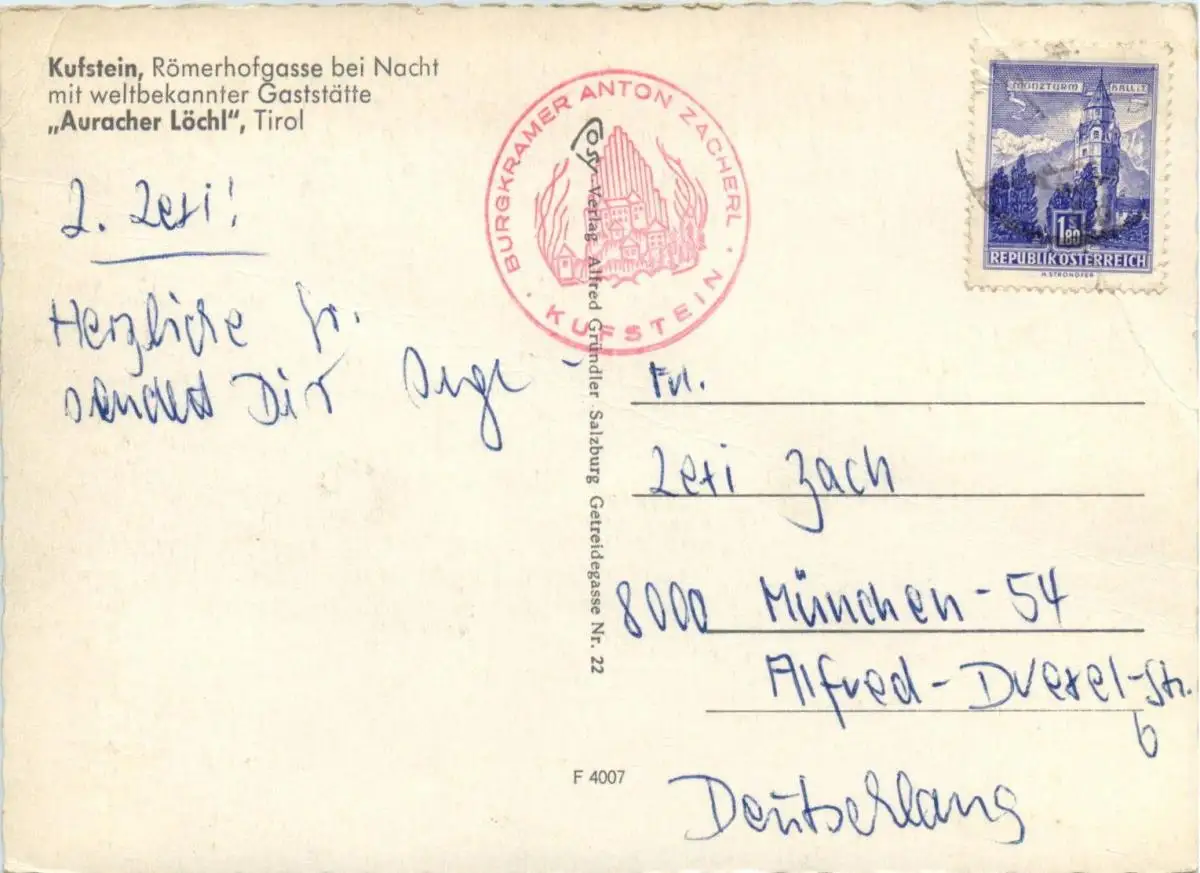 Kufstein, Römerhofgasse bei Nacht
mit weltbekannter Gaststätte
„Auracher Löchl“, Tirol
L. Lexi!
Herzliche Gr.
sendet Dir
BURGKRAMER ANTON ZACHERL
· KUFSTEIN ·
Cosy-Verlag Alfred Gründler Salzburg Getreidegasse Nr. 22
MÜNZTURM HALL I.T.
1.80
S
REPUBLIK ÖSTERREICH
Frl.
Lexi Zach
8000 München-54
Alfred-Drexel-Str.
6
Deutschland
F 4007